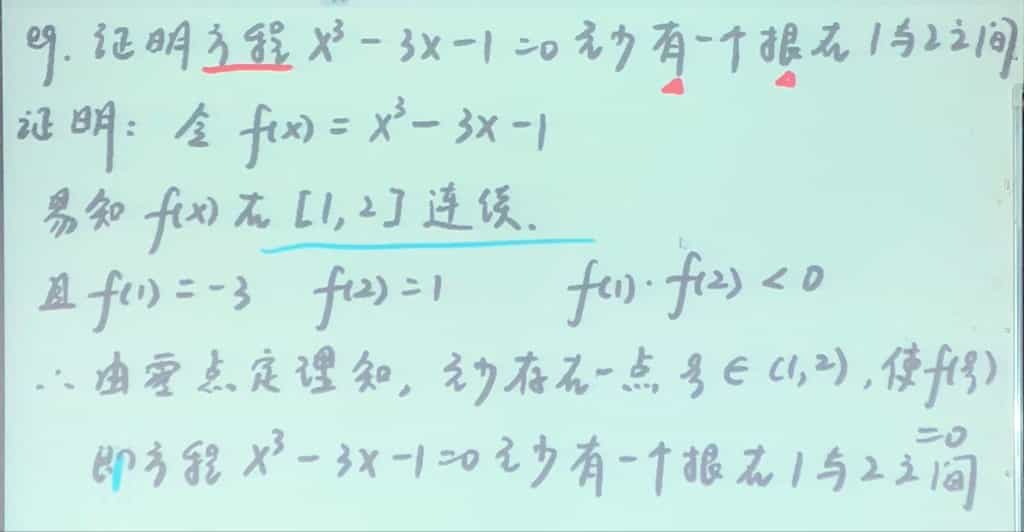 eg. 证明方程 x³ - 3x - 1 = 0 至少有一个根在1与2之间.
证明: 令 f(x) = x³ - 3x - 1
易知 f(x) 在 [1, 2] 连续.
且 f(1) = -3 f(2) = 1 f(1)·f(2) < 0
∴ 由零点定理知, 至少存在一点 ξ ∈ (1, 2), 使 f(ξ)
=0
即方程 x³ - 3x - 1 = 0 至少有一个根在1与2之间